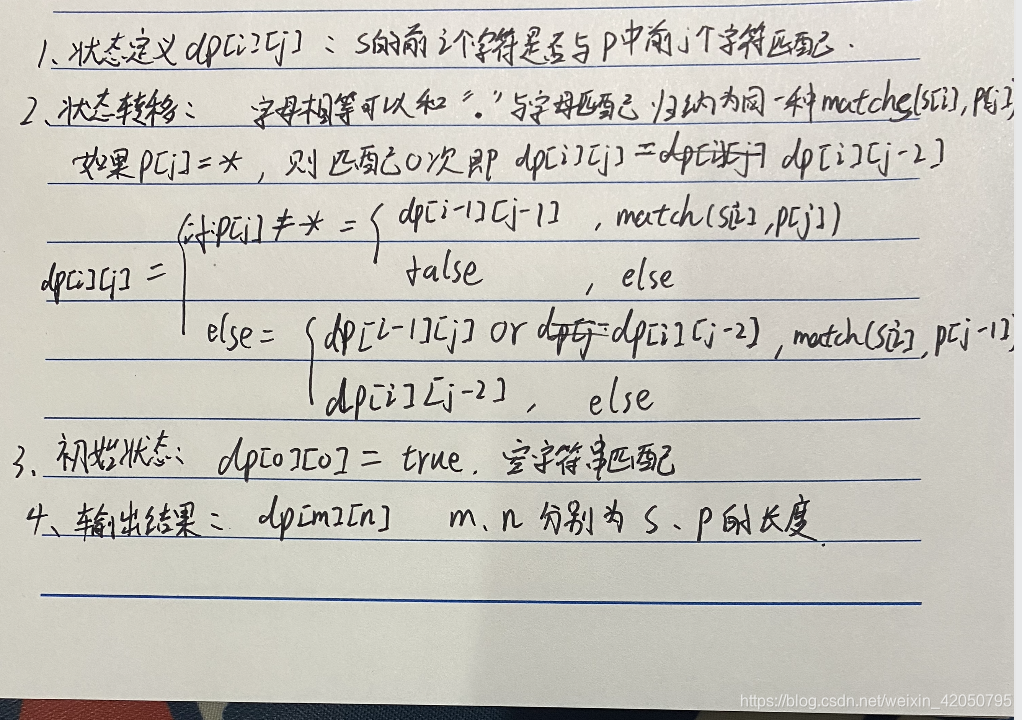 1、状态定义 dp[i][j]：s的前i个字符是否与p中前j个字符匹配.
2、状态转移： 字母相等可以和"."与字母匹配归纳为同一种matches(s[i], p[j]
如果p[j]=*，则匹配0次即 dp[i][j] = dp[i][j-2]
if p[j]≠* = { dp[i-1][j-1] , match(s[i],p[j])
dp[i][j] = { false , else
else = { dp[i-1][j] or dp[i][j-2] , match(s[i], p[j-1]
dp[i][j-2] , else
3、初始状态： dp[0][0] = true. 空字符串匹配
4、输出结果： dp[m][n] m、n 分别为 s、p 的长度.
https://blog.csdn.net/weixin_42050795